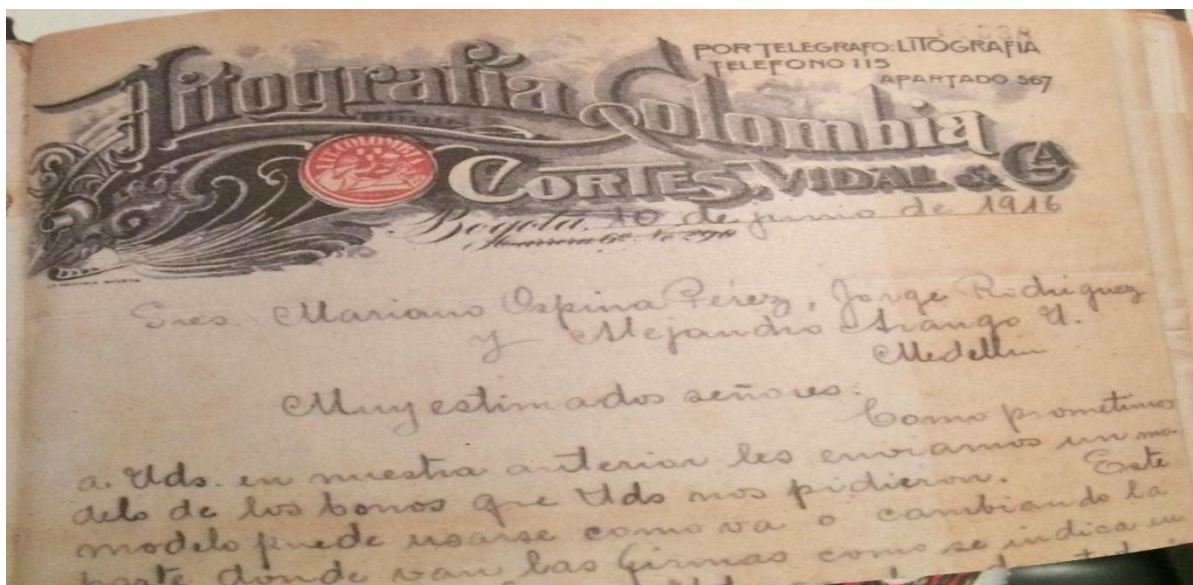 POR TELEGRAFO: LITOGRAFIA
TELEFONO 115
APARTADO 567
Litografía Colombia
LIT. COLOMBIA
CORTES, VIDAL & CIA
Bogotá, 10 de junio de 1916
Carrera 6ª No
Sres. Mariano Ospina Pérez, Jorge Rodríguez
y Alejandro Arango U.
Medellín
Muy estimados señores:
Como prometimos
a Uds. en nuestra anterior les enviamos un mo-
delo de los bonos que Uds nos pidieron. Este
modelo puede usarse como va o cambiando la
parte donde van las firmas como se indica en